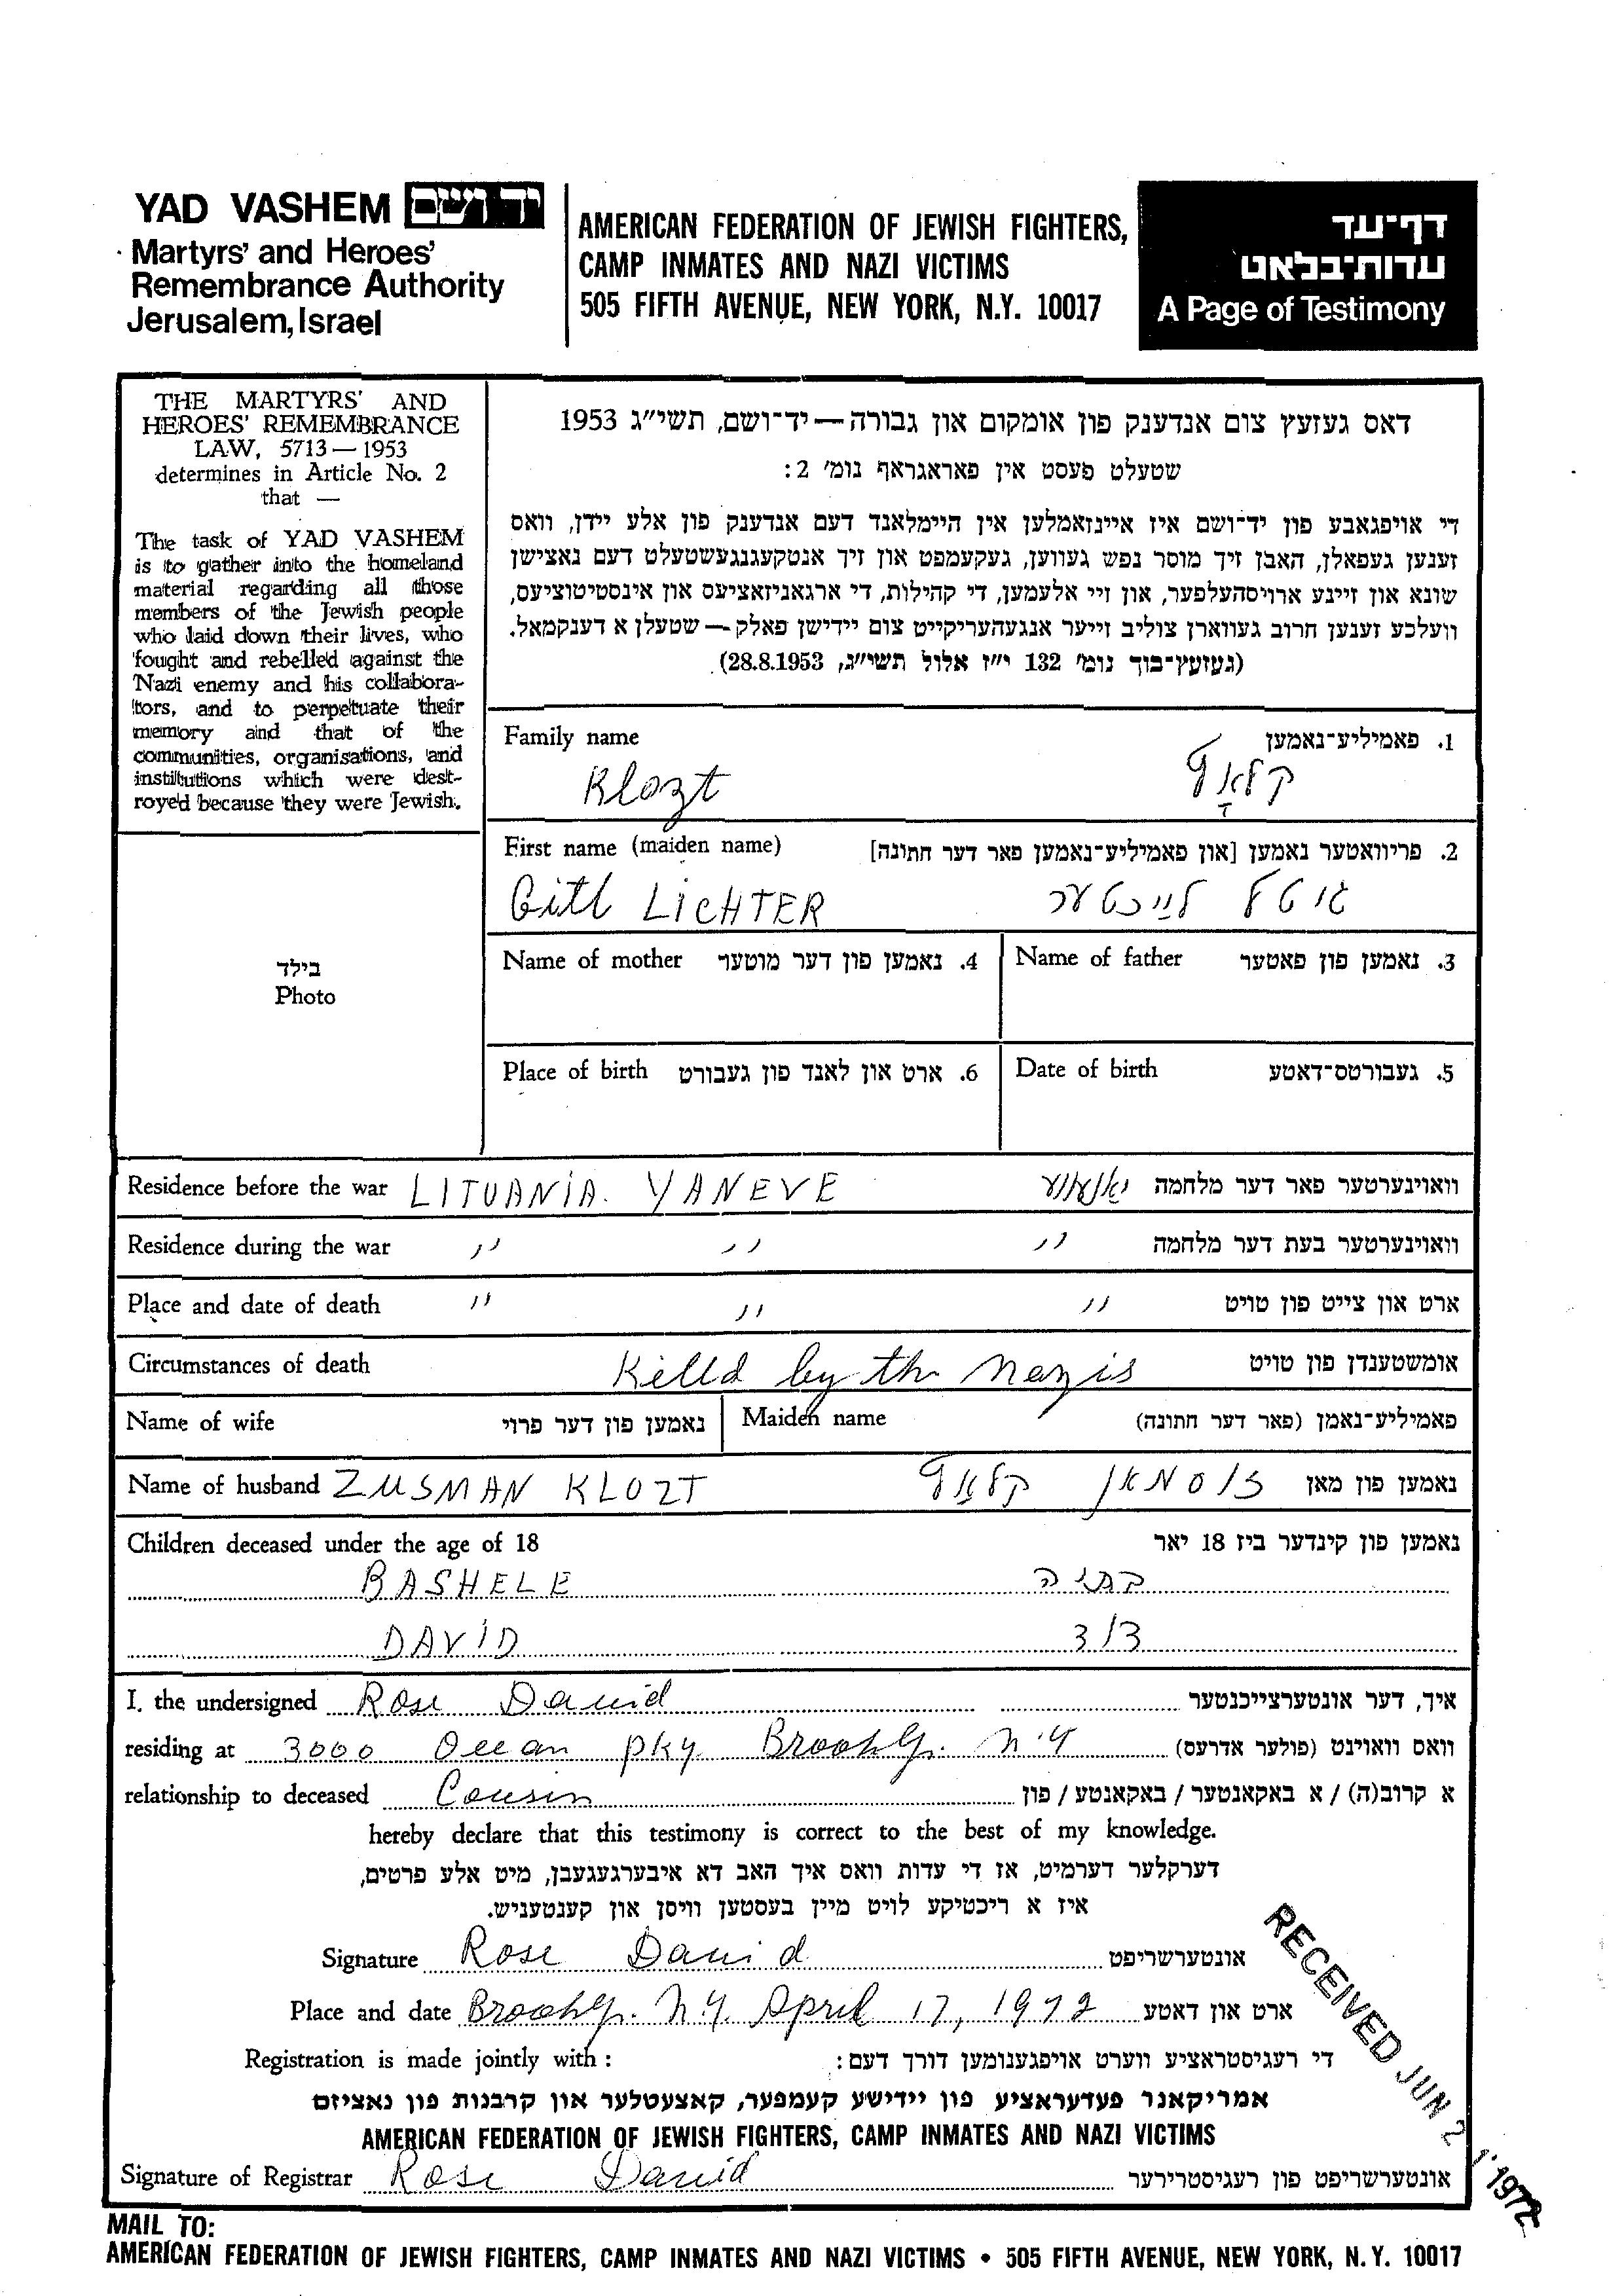 YAD VASHEM יד ושם
Martyrs' and Heroes'
Remembrance Authority
Jerusalem, Israel
AMERICAN FEDERATION OF JEWISH FIGHTERS,
CAMP INMATES AND NAZI VICTIMS
505 FIFTH AVENUE, NEW YORK, N.Y. 10017
דף־עד
עדות־בלאט
A Page of Testimony
THE MARTYRS' AND
HEROES' REMEMBRANCE
LAW, 5713 — 1953
determines in Article No. 2
that —
The task of YAD VASHEM
is to gather into the homeland
material regarding all those
members of the Jewish people
who laid down their lives, who
fought and rebelled against the
Nazi enemy and his collabora-
tors, and to perpetuate their
memory and that of the
communities, organisations, and
institutions which were dest-
royed because they were Jewish.
דאס געזעץ צום אנדענק פון אומקום און גבורה — יד־ושם, תשי״ג 1953
שטעלט פעסט אין פאראגראף נומ׳ 2:
די אויפגאבע פון יד־ושם איז איינזאמלען אין היימלאנד דעם אנדענק פון אלע יידן, וואס
זענען געפאלן, האבן זיך מוסר נפש געווען, געקעמפט און זיך אנטקעגנגעשטעלט דעם נאצישן
שונא און זיינע ארויסהעלפער, און זיי אלעמען, די קהילות, די ארגאניזאציעס און אינסטיטוציעס,
וועלכע זענען חרוב געווארן צוליב זייער אנגעהעריקייט צום יידישן פאלק — שטעלן א דענקמאל.
(געזעץ־בוך נומ׳ 132 י״ז אלול תשי״ג, 28.8.1953).
Family name 1. פאמיליע־נאמען
Klozt קלאָץ
First name (maiden name) 2. פריוואטער נאמען [און פאמיליע־נאמען פאר דער חתונה]
Gitl LICHTER גיטל לייכטער
Name of mother 4. נאמען פון דער מוטער Name of father 3. נאמען פון פאטער
בילד
Photo
Place of birth 6. ארט און לאנד פון געבורט Date of birth 5. געבורטס־דאטע
Residence before the war LITUANIA. YANEVE יאַנעווע וואוינערטער פאר דער מלחמה
Residence during the war " " " וואוינערטער בעת דער מלחמה
Place and date of death " " " ארט און צייט פון טויט
Circumstances of death Killd by the Nazis אומשטענדן פון טויט
Name of wife נאמען פון דער פרוי Maiden name פאמיליע־נאמן (פאר דער חתונה)
Name of husband ZUSMAN KLOZT זוסמאן קלאָץ נאמען פון מאן
Children deceased under the age of 18 נאמען פון קינדער ביז 18 יאר
BASHELE
DAVID דוד
I, the undersigned Rose David איך, דער אונטערצייכנטער
residing at 3000 Ocean pky. Brooklyn. N.Y וואס וואוינט (פולער אדרעס)
relationship to deceased Cousin א קרוב(ה) / א באקאנטער / באקאנטע / פון
hereby declare that this testimony is correct to the best of my knowledge.
דערקלער דערמיט, אז די עדות וואס איך האב דא איבערגעגעבן, מיט אלע פרטים,
איז א ריכטיקע לויט מיין בעסטען וויסן און קענטעניש.
Signature Rose David אונטערשריפט
Place and date Brooklyn. N.Y. April 17, 1972 ארט און דאטע
Registration is made jointly with : די רעגיסטראציע ווערט אויפגענומען דורך דעם:
אמריקאנר פעדעראציע פון יידישע קעמפער, קאצעטלער און קרבנות פון נאציזם
AMERICAN FEDERATION OF JEWISH FIGHTERS, CAMP INMATES AND NAZI VICTIMS
Signature of Registrar Rose David אונטערשריפט פון רעגיסטרירער
RECEIVED JUN 21 1972
MAIL TO:
AMERICAN FEDERATION OF JEWISH FIGHTERS, CAMP INMATES AND NAZI VICTIMS • 505 FIFTH AVENUE, NEW YORK, N.Y. 10017